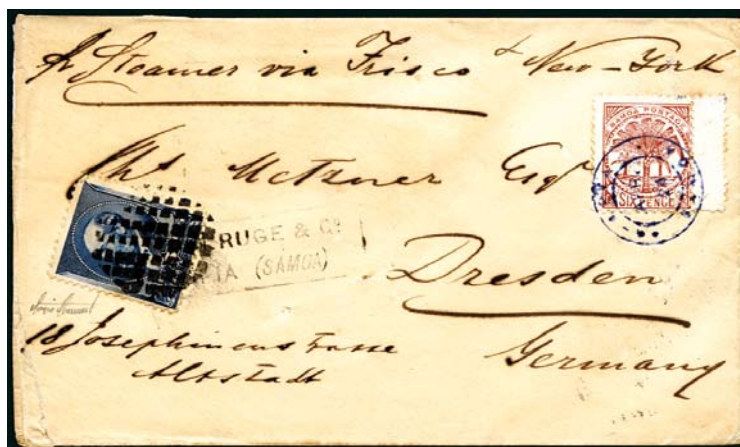 pr Steamer via Frisco & New-York
SAMOA POSTAGE
SIXPENCE
Metzner Esqr
RUGE & Co
APIA (SAMOA)
Dresden
18 Josephinenstrasse
Altstadt
Germany